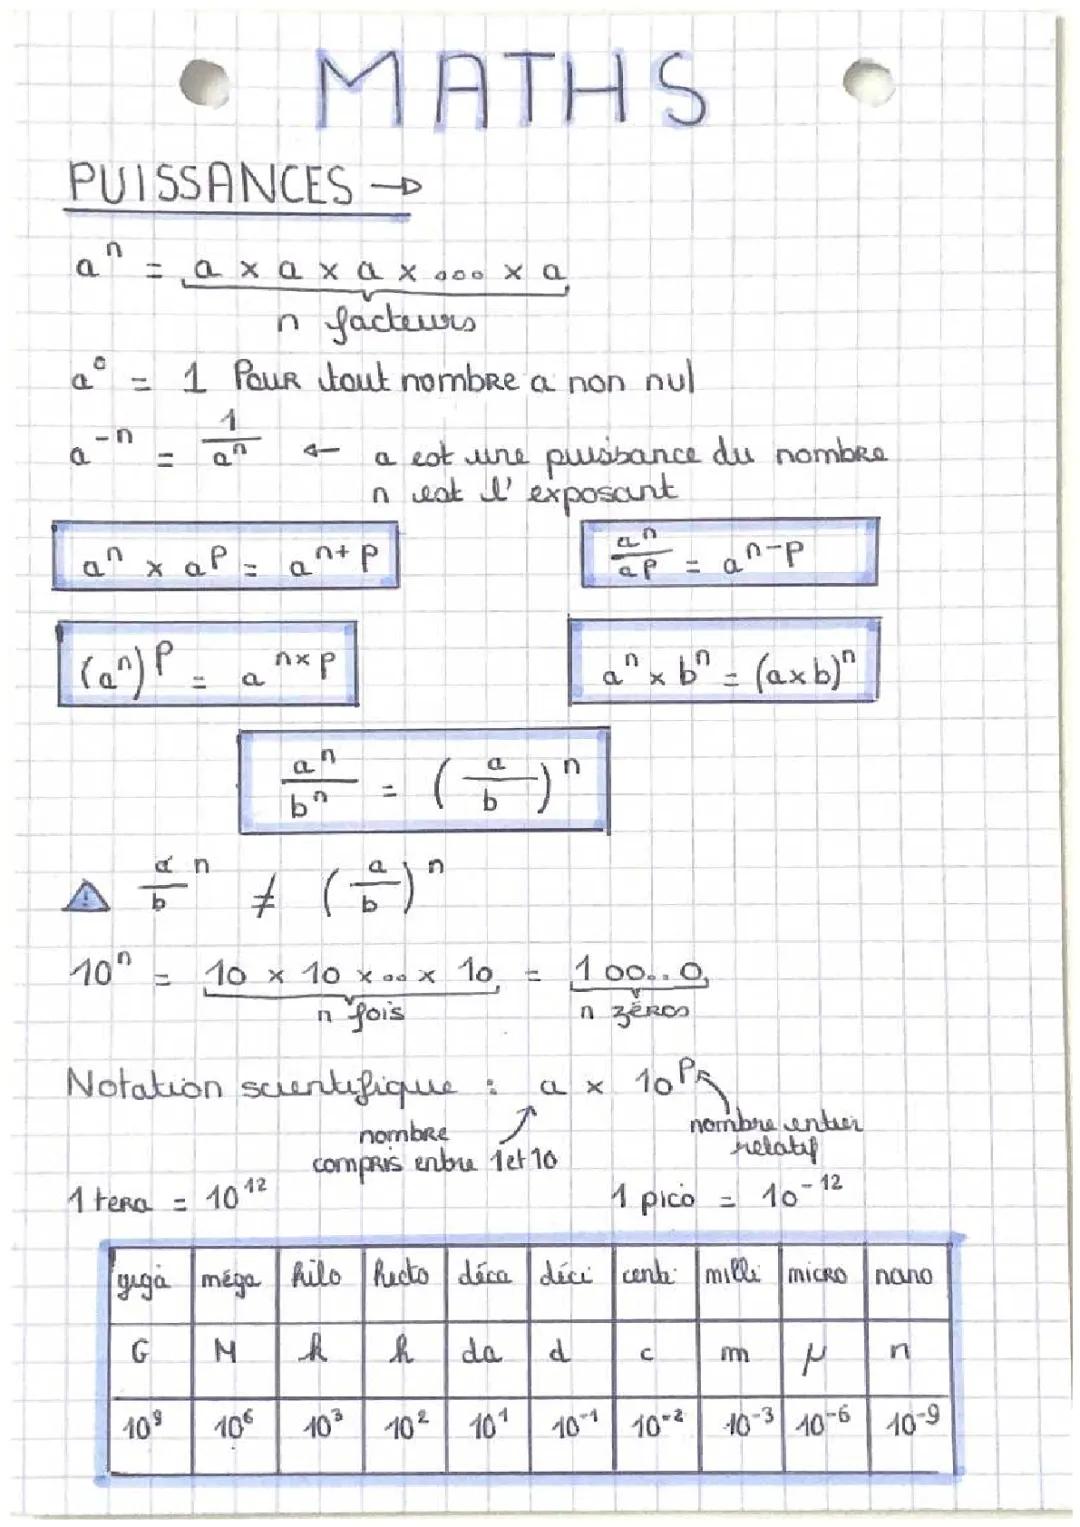 MATHS
PUISSANCES →
aⁿ = a x a x a x ... x a
n facteurs
a⁰ = 1 Pour tout nombre a non nul
a⁻ⁿ = 1/aⁿ ← a est une puissance du nombre
n est l'exposant
aⁿ x aᵖ = aⁿ⁺ᵖ
aⁿ/aᵖ = aⁿ⁻ᵖ
(aⁿ)ᵖ = aⁿˣᵖ
aⁿ x bⁿ = (axb)ⁿ
aⁿ/bⁿ = (a/b)ⁿ
⚠ aⁿ/b ≠ (a/b)ⁿ
10ⁿ = 10 x 10 x ... x 10 = 100...0
n fois n zéros
Notation scientifique : a x 10ᵖ
nombre compris entre 1 et 10
nombre entier relatif
1 tera = 10¹² 1 pico = 10⁻¹²
giga méga kilo hecto déca déci centi milli micro nano
G M k h da d c m μ n
10⁹ 10⁶ 10³ 10² 10¹ 10⁻¹ 10⁻² 10⁻³ 10⁻⁶ 10⁻⁹